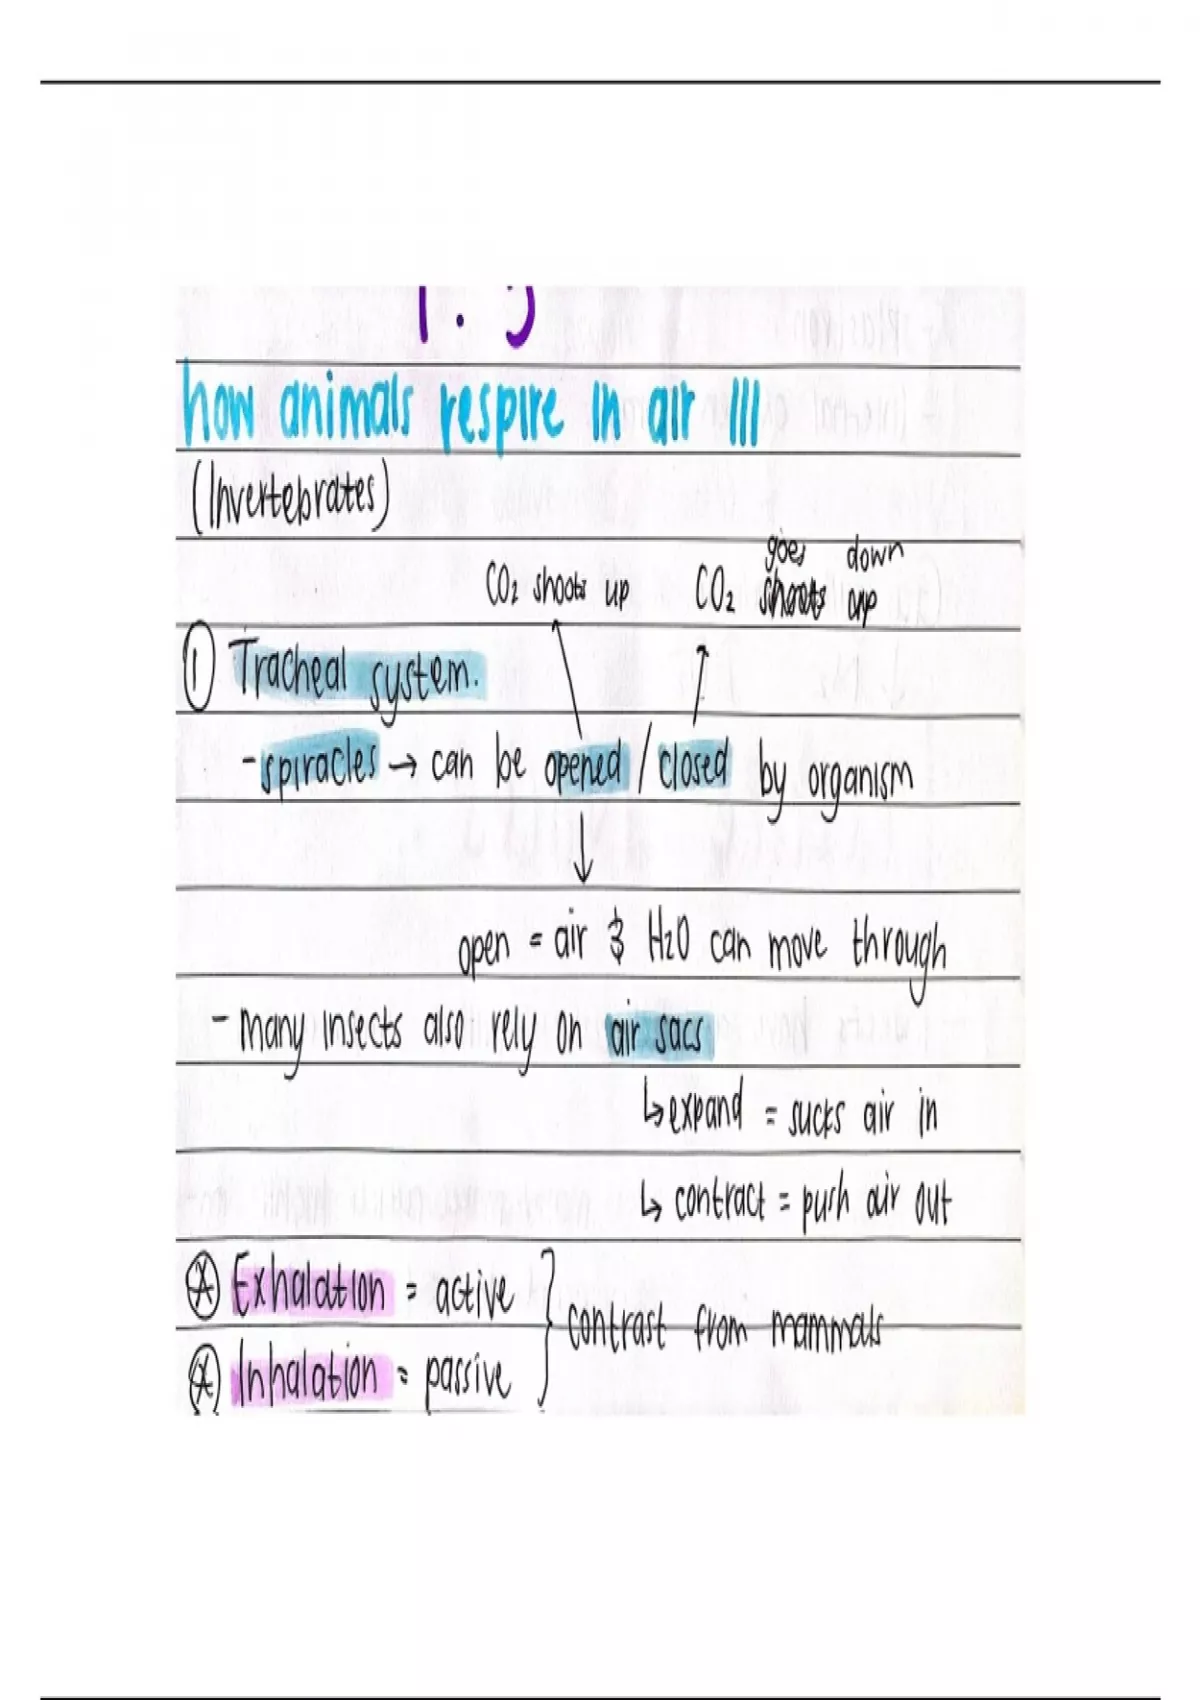 how animals respire in air III
(Invertebrates)
goes down
CO2 shoots up CO2 shoots up
① Tracheal system.
- spiracles → can be opened / closed by organism
↓
open = air & H2O can move through
- many insects also rely on air sacs
↳ expand = sucks air in
↳ contract = push air out
Exhalation = active
contrast from mammals
Inhalation = passive